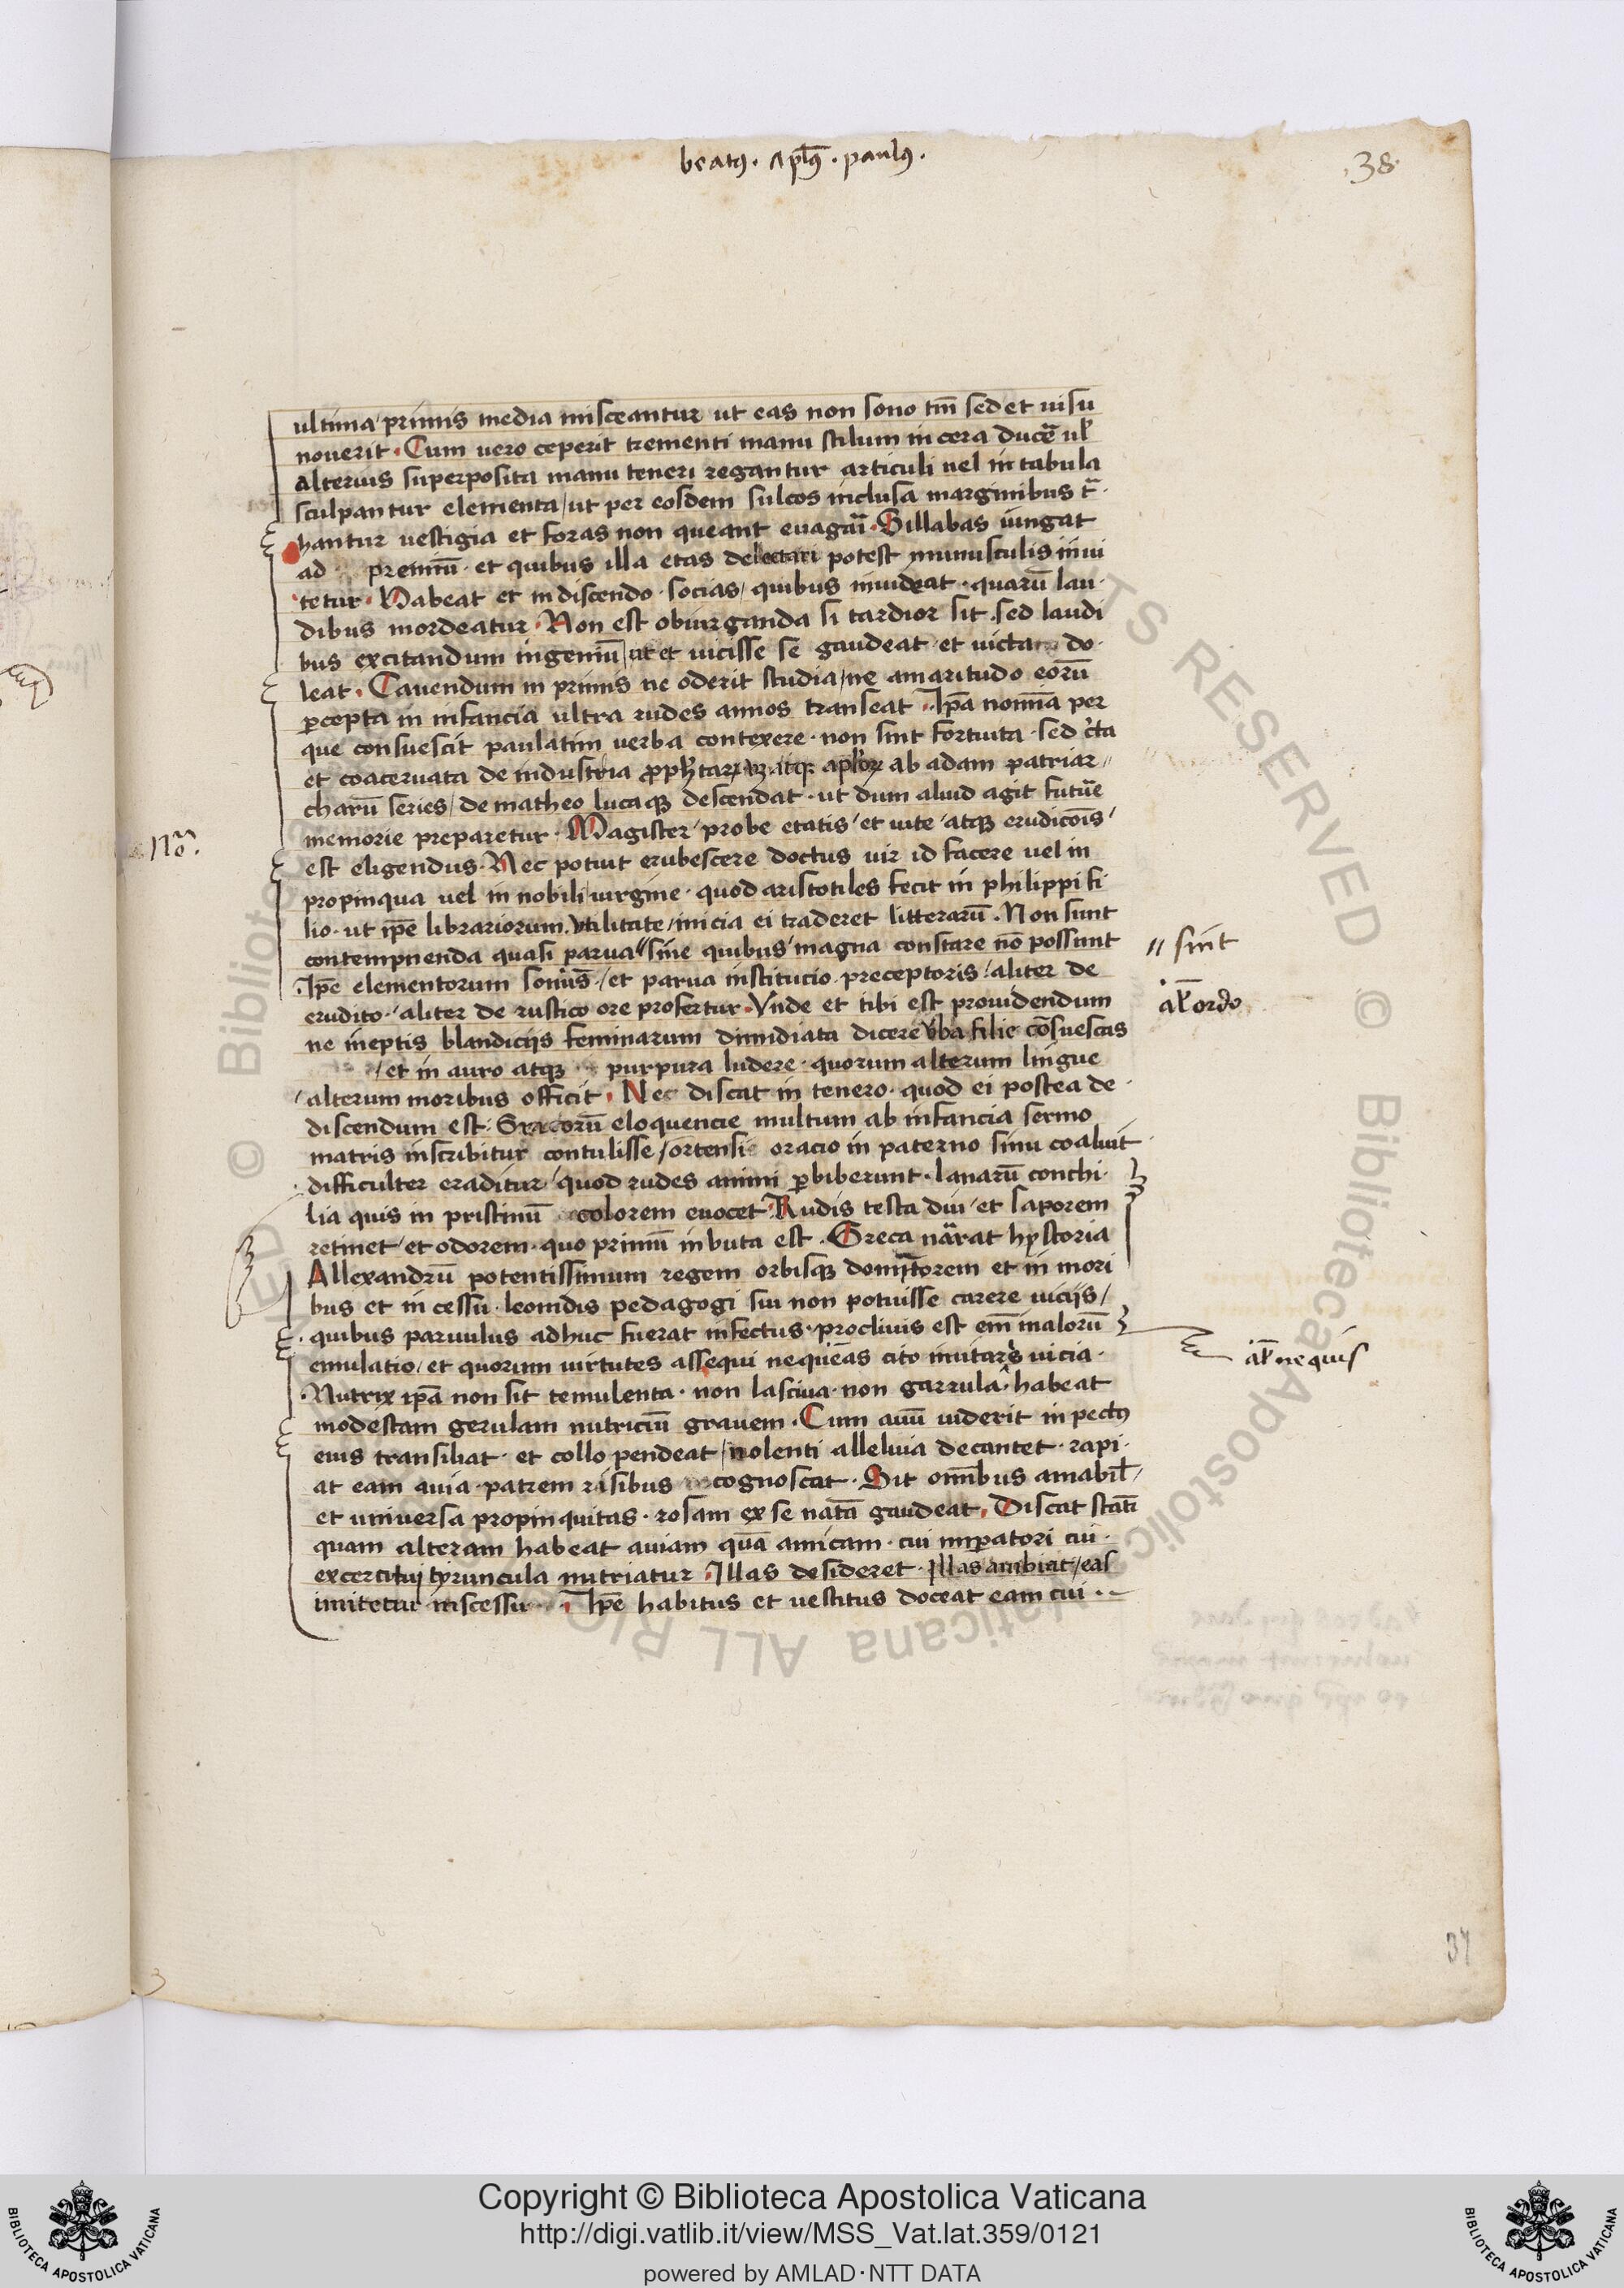 beatꝰ. aplꝰ. paulꝰ.
38
ultima / primis media misceantur ut eas non sono tm̄ sed et uisu
nouerit. Cum uero ceperit trementi manu stilum in cera ducē ul̄
alterius superposita manu teneri regantur articuli uel in tabula
sculpantur elementa / ut per eosdem sulcos inclusa marginibus t̄ra
hantur uestigia et foras non queant euagari. Sillabas iungat
ad premiū. et quibus illa etas delectari potest munusculis inui
tetur. Habeat et in discendo. socias / quibus inuideat. quarū lau
dibus mordeatur. Non est obiurganda si tardior sit. sed laudi
bus excitandum ingeniū / ut et uicisse se gaudeat. et uictam do
leat. Cauendum in primis ne oderit studia / ne amaritudo eorū
ꝑcepta in infancia ultra rudes annos transeat. Ipā nomīa per
que consuescit paulatim uerba contexere. non sint fortuita. sed c̄ta
et coaceruata de industria ꝓphetarum atqꝫ aplorꝝ ab adam patriar
charū series / de matheo lucaqꝫ descendat. ut dum aliud agit futuē
memorie preparetur. Magister / probe etatis / et uite / atqꝫ erudicōis /
Noᵃ.
est eligendus. Nec potuit erubescere doctus uir id facere uel in
propinqua uel in nobili uirgine. quod aristotiles fecit in philippi fi
lio. ut ip̄e librariorum. utilitate / inicia ei traderet litterarū. Non sunt
contempnenda quasi parua // sine quibus magna constare nō possunt
// sint
Ip̄e elementorum sonus. / et parua institucio preceptoris / aliter de
al̄ ordo
erudito / aliter de rustico ore profertur. Vnde et tibi est prouidendum
ne ineptis blandicijs feminarum dimidiata dicere v̄ba filie cōsuescas
/ et in auro atqꝫ purpura ludere. quorum alterum lingue
/ alterum moribus officit. Nec discat in tenero. quod ei postea de
discendum est. Graccorū eloquencie multum ab infancia sermo
matris inscribitur contulisse / ortensi oracio in paterno sinu coaluit
difficulter eraditur / quod rudes animi ꝑbiberunt. lanarū conchi
lia quis in pristinū colorem euocet. Rudis testa diu / et saporem
retinet / et odorem. quo primū inbuta est. Greca nārat hystoria
Allexandrū potentissimum regem orbisqꝫ domitorem et in mori
bus et in cessu. leonidis pedagogi sui non potuisse carere uicijs /
quibus paruulus adhuc fuerat infectus. procliuis est em̄ malorū
emulatio / et quorum uirtutes assequi nequeas cito imitaris uicia.
al̄ nequis
Nutrix ipā non sit temulenta. non lasciua. non garrula. habeat
modestam gerulam nutriciū grauem. Cum auū uiderit in pectꝰ
eius transiliat. et collo pendeat / nolenti alleluia decantet. rapi
at eam auia. patrem risibus recognoscat. Sit omībus amabil̄ /
et uniuersa propinquitas. rosam ex se natā gaudeat. Discat statī
quam alteram habeat auiam quā amicam. cui imꝑatori cui
excercitui tyruncula nutriatur. Illas desideret. Illas ambiat / eas
imitetur incessu Ip̄e habitus et uestitus doceat eam cui
37
Copyright © Biblioteca Apostolica Vaticana
http://digi.vatlib.it/view/MSS_Vat.lat.359/0121
powered by AMLAD·NTT DATA
BIBLIOTECA APOSTOLICA VATICANA
BIBLIOTECA APOSTOLICA VATICANA